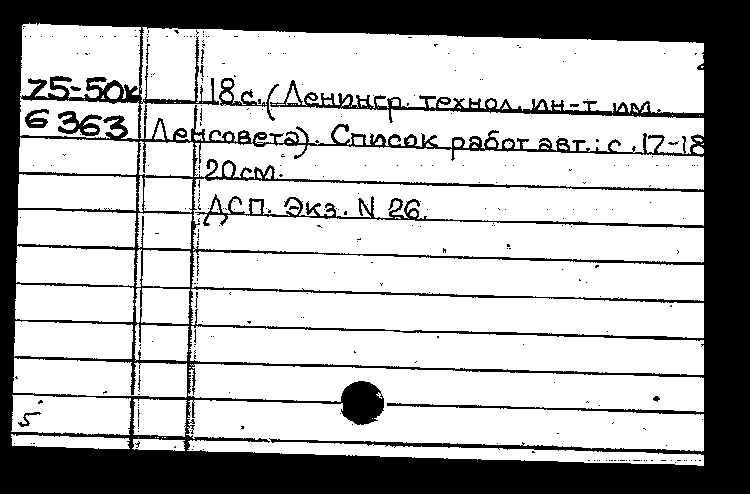 75-50к 18с. (Ленингр. технол. ин-т им.
6363 Ленсовета). Список работ авт.: с. 17-18
20см.
ДСП. Экз. N 26.
5.